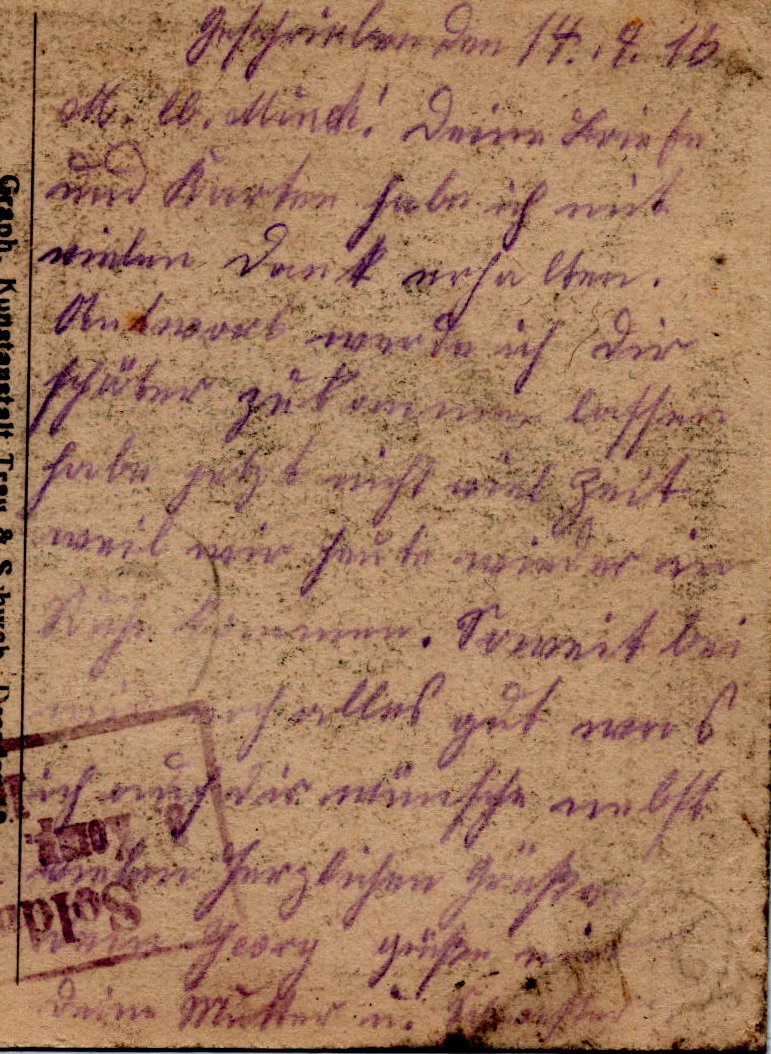 Geschrieben den 14. . 9. 16
M. lb. Münch! Deine Briefe
und Karten habe ich mit
vielen Dank erhalten.
Antwort werde ich Dir
später zukommen lassen
habe jetzt nicht viel Zeit
weil wir heute wieder in
Ruhe kommen. Soweit bei
mir noch alles gut was
ich auch dir wünsche nebst
vielen herzlichen Grüßen
Georg grüße mir
Deine Mutter u. Schwester
Graph. Kunstanstalt &
Sold
Korp.